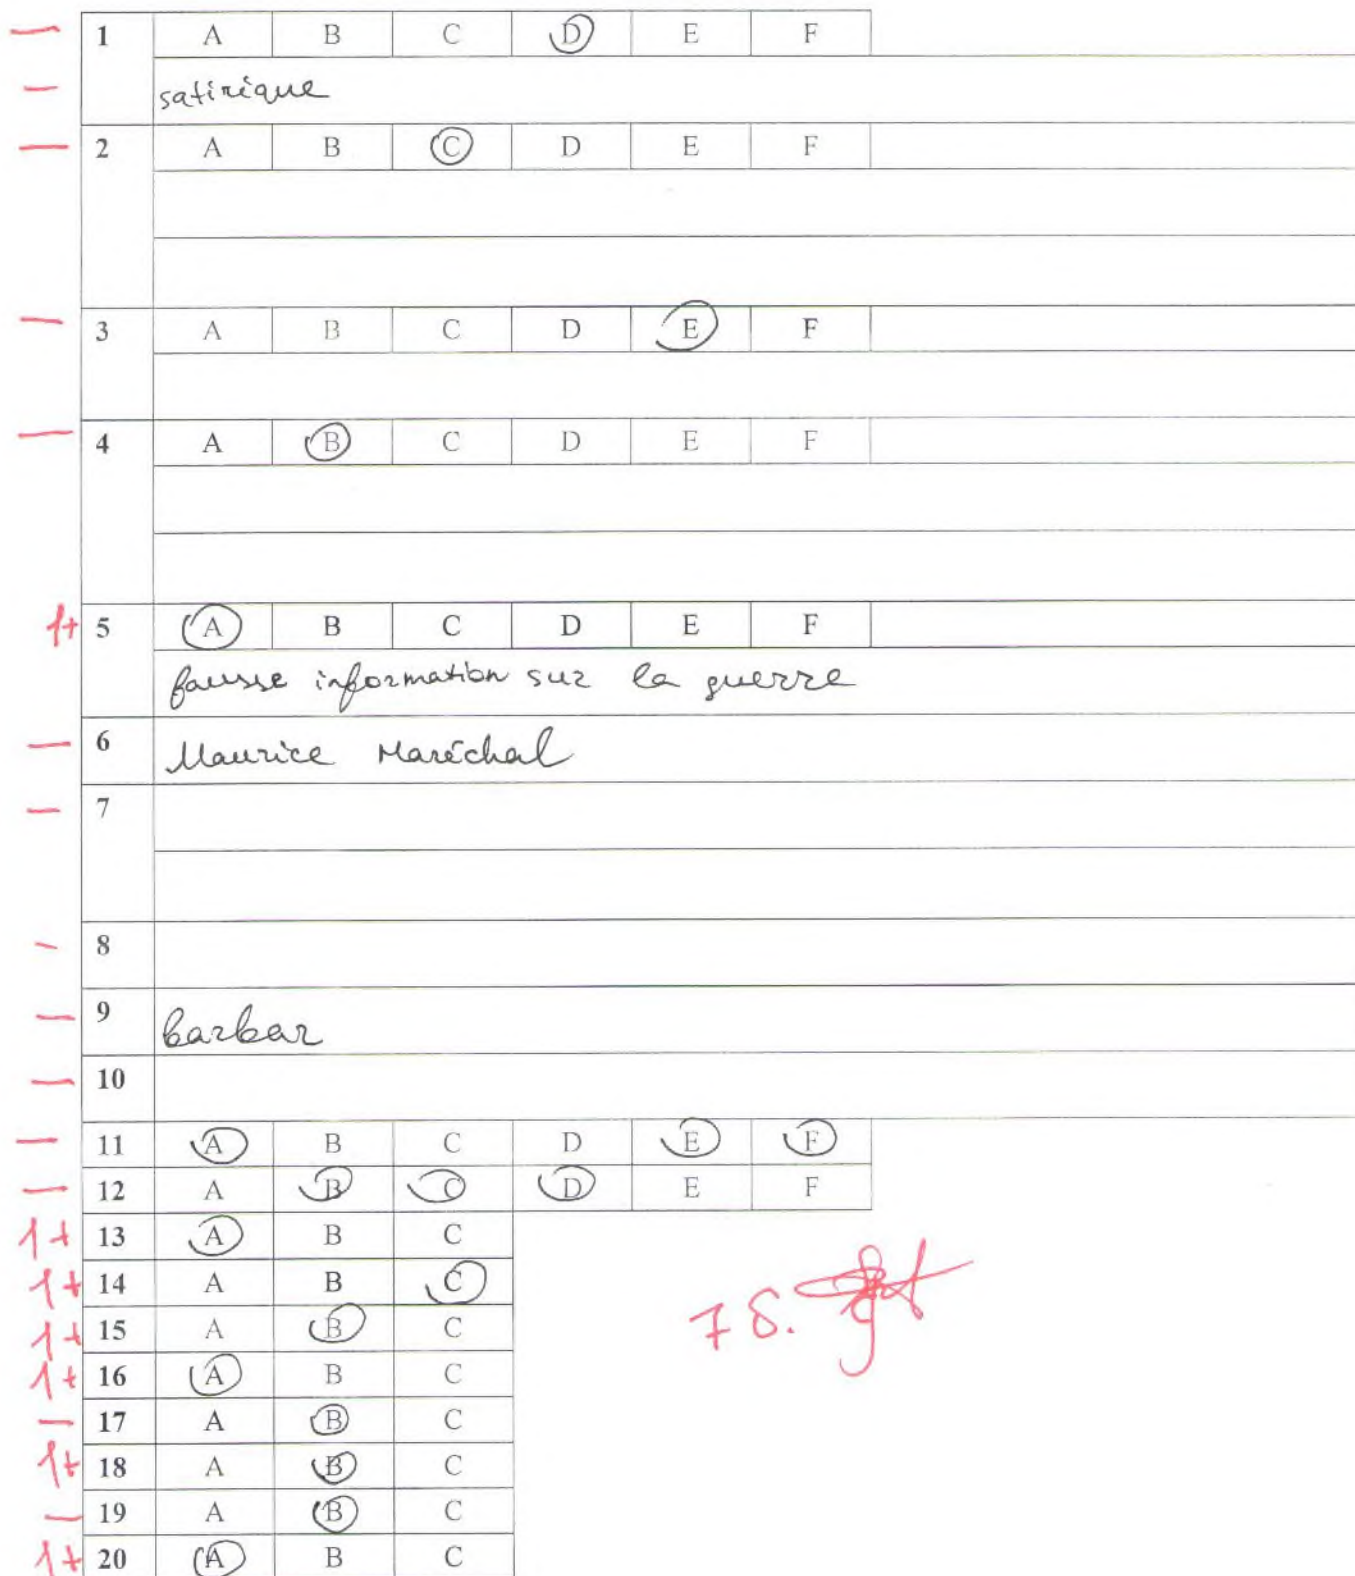 — 1 A B C D E F
— satirique
— 2 A B C D E F
— 3 A B C D E F
— 4 A B C D E F
1+ 5 A B C D E F
fausse information sur la guerre
— 6 Maurice Maréchal
— 7
— 8
— 9 barbar
— 10
— 11 A B C D E F
— 12 A B C D E F
1+ 13 A B C
1+ 14 A B C
1+ 15 A B C
1+ 16 A B C
— 17 A B C
1+ 18 A B C
— 19 A B C
1+ 20 A B C
7 б.